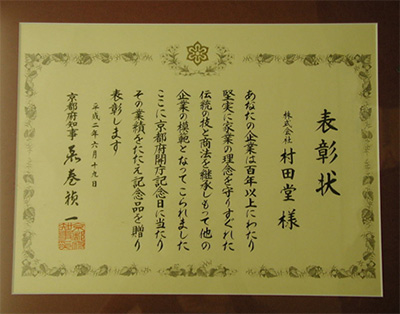 表彰状
株式会社 村田堂 様
あなたの企業は百年以上にわたり
堅実に家業の理念を守りすぐれた
伝統の技と商法を継承しもって他の
企業の模範となってこられました
ここに京都府開庁記念日に当たり
その業績をたたえ記念品を贈り
表彰します
平成二年六月十九日
京都府知事 荒巻禎一